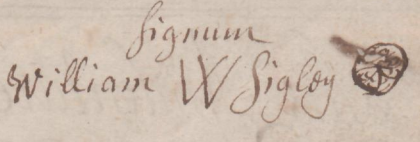 Signum
William W Sigley